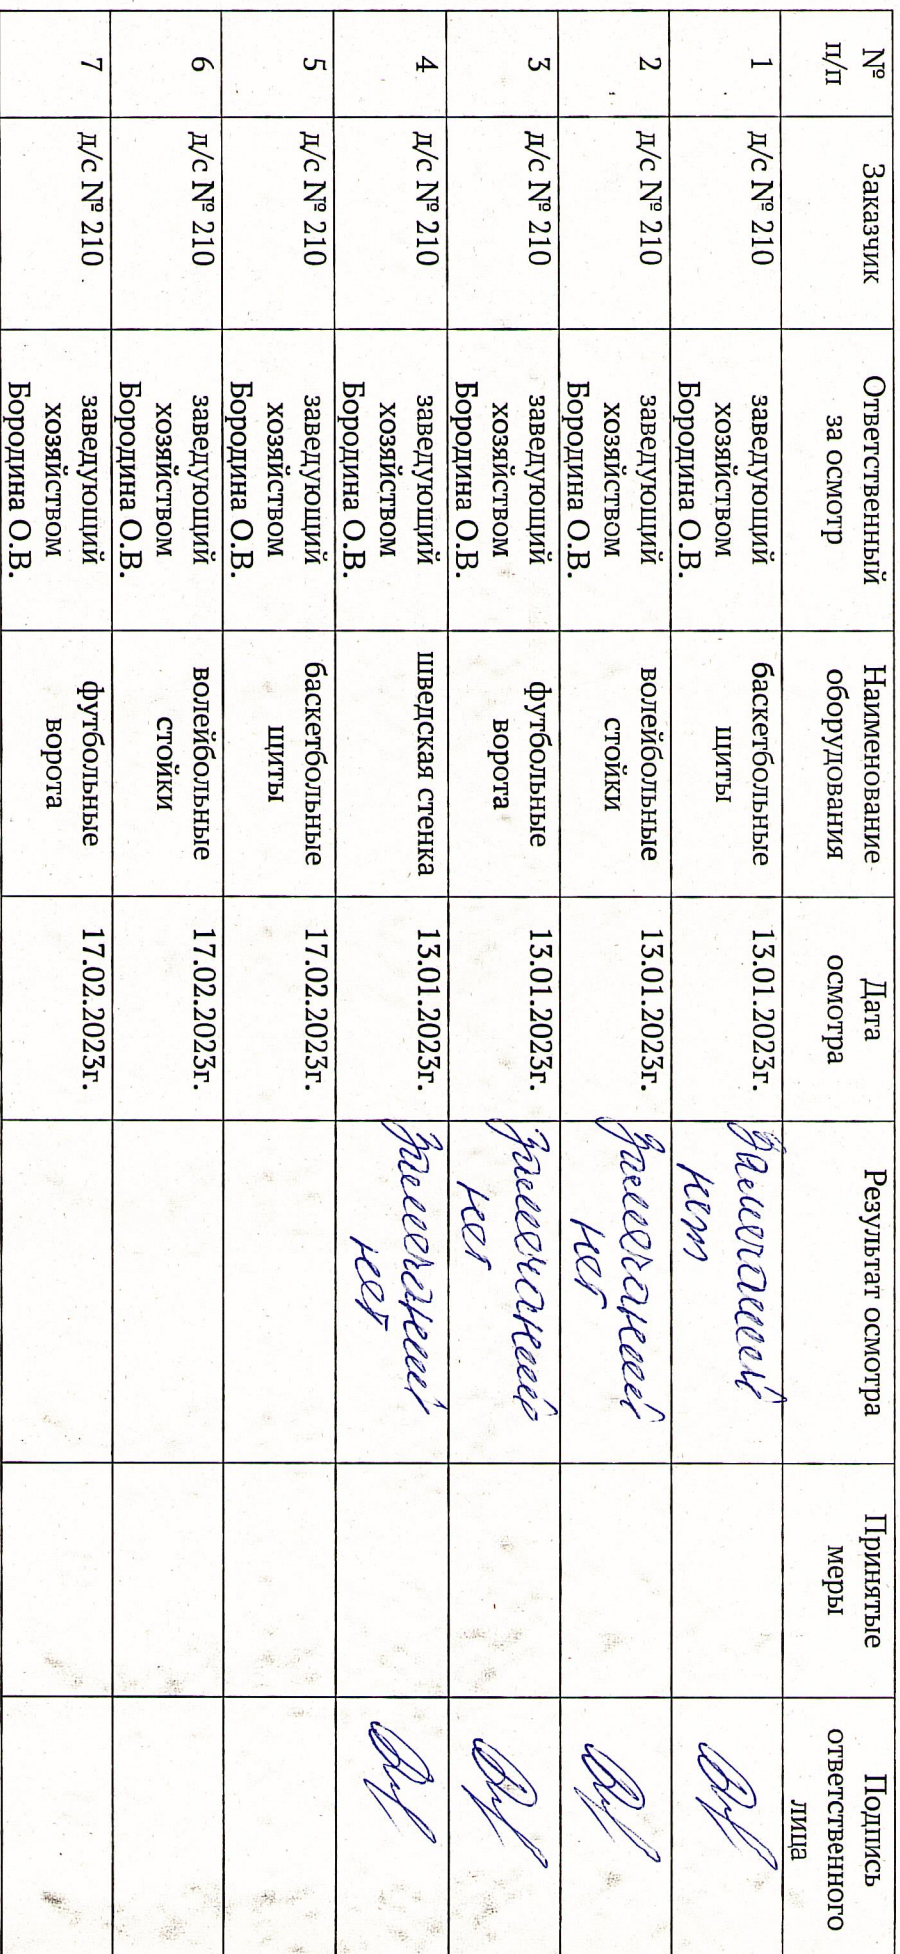 № п/п | Заказчик | Ответственный за осмотр | Наименование оборудования | Дата осмотра | Результат осмотра | Принятые меры | Подпись ответственного лица
1 | д/с № 210 | заведующий хозяйством Бородина О.В. | баскетбольные щиты | 13.01.2023г. | Замечаний нет
2 | д/с № 210 | заведующий хозяйством Бородина О.В. | волейбольные стойки | 13.01.2023г. | Замечаний нет
3 | д/с № 210 | заведующий хозяйством Бородина О.В. | футбольные ворота | 13.01.2023г. | Замечаний нет
4 | д/с № 210 | заведующий хозяйством Бородина О.В. | шведская стенка | 13.01.2023г. | Замечаний нет
5 | д/с № 210 | заведующий хозяйством Бородина О.В. | баскетбольные щиты | 17.02.2023г.
6 | д/с № 210 | заведующий хозяйством Бородина О.В. | волейбольные стойки | 17.02.2023г.
7 | д/с № 210 | заведующий хозяйством Бородина О.В. | футбольные ворота | 17.02.2023г.